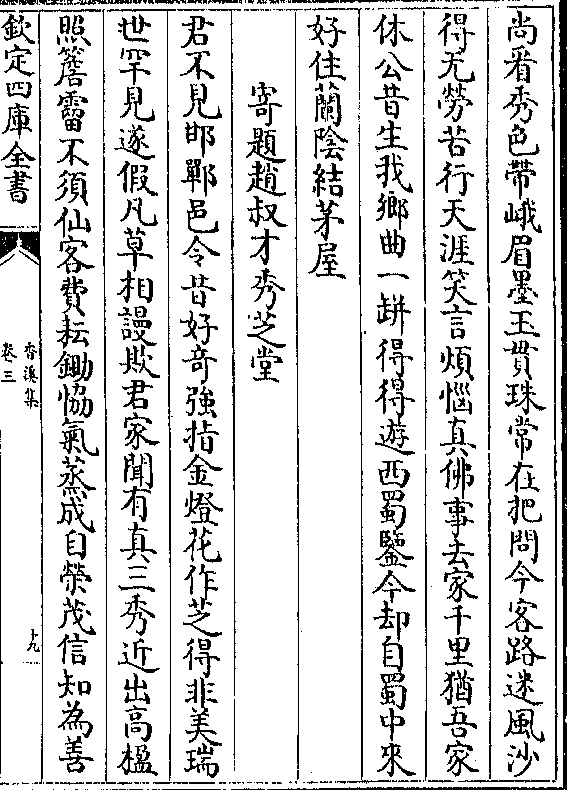 尚看秀色帶峨眉墨玉貫珠常在把問今客路迷風沙
得无勞苦行天涯笑言煩惱真佛事去家千里猶吾家
休公昔生我鄉曲一缾得得遊西蜀鑒今却自蜀中來
好住蘭陰結茅屋
寄題趙叔才秀芝堂
君不見邯鄲邑令昔好竒強指金燈花作芝得非美瑞
世罕見遂假凡草相謾欺君家聞有真三秀近出髙楹
照簷霤不須仙客費耘鋤恊氣蒸成自榮茂信知為善
欽定四庫全書
香溪集
卷三
十九